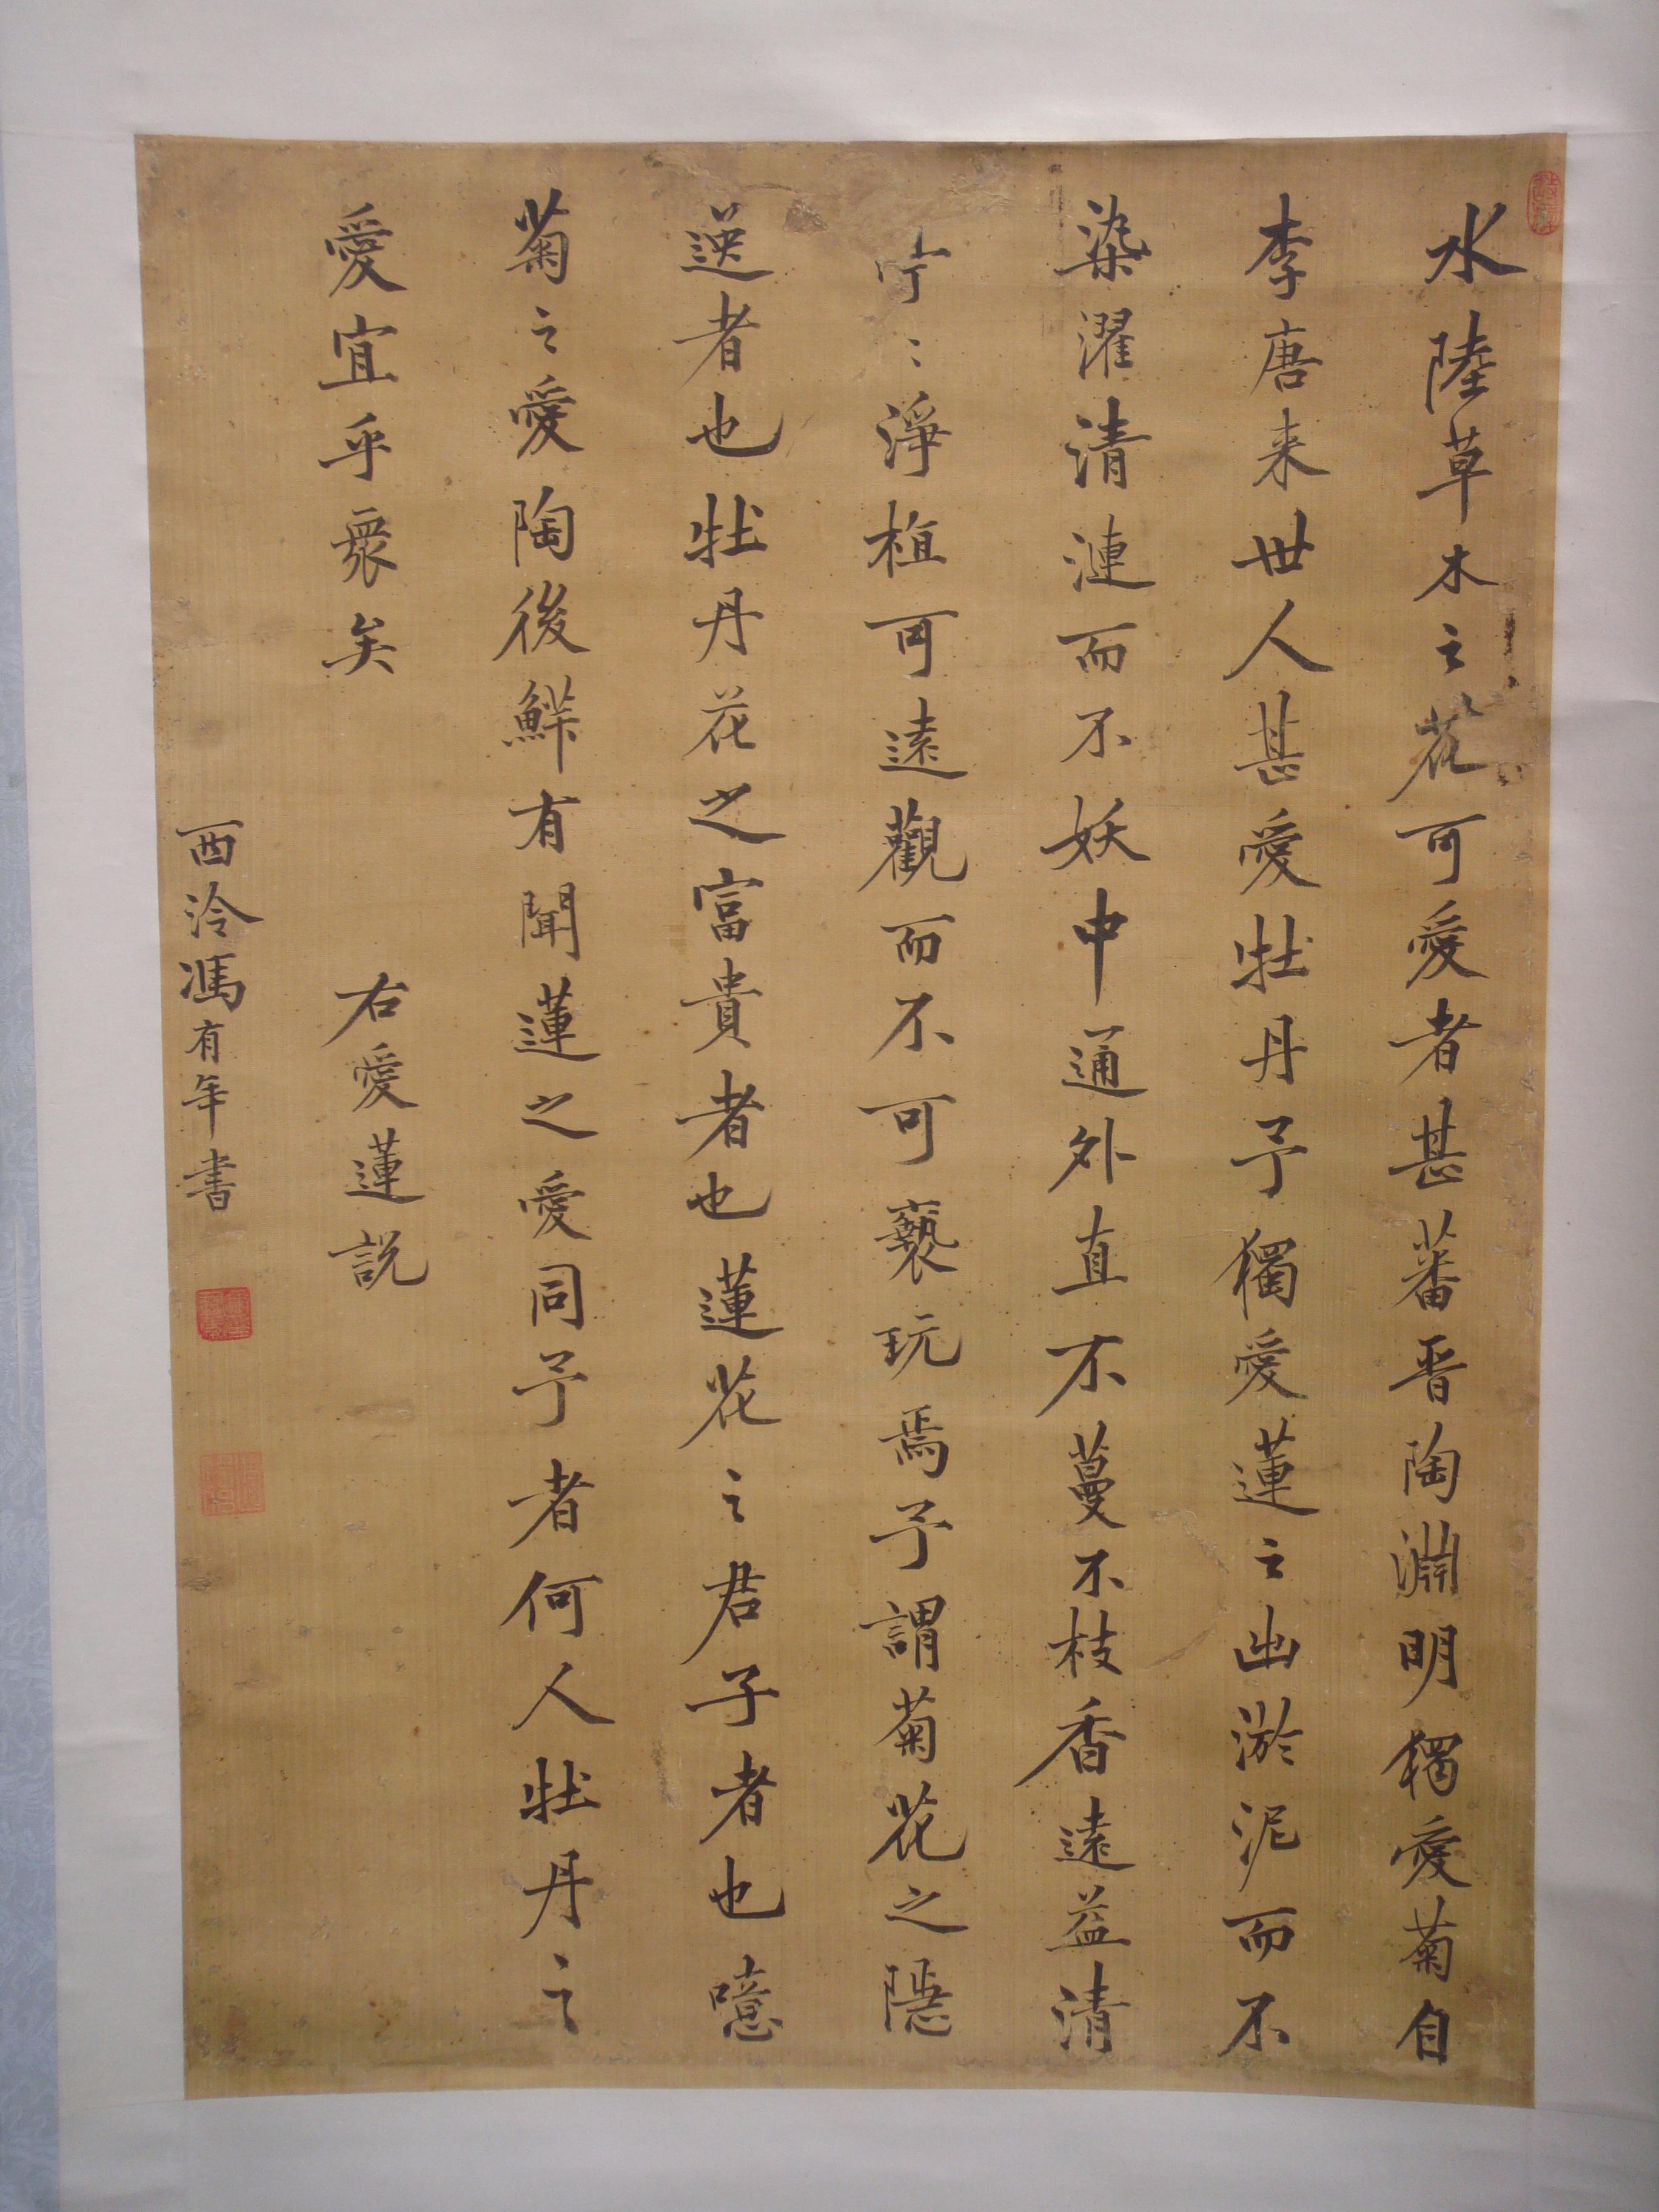 水陸草木之花可愛者甚蕃晋陶淵明獨愛菊自
李唐来世人甚愛牡丹予獨愛蓮之出淤泥而不
染濯清漣而不妖中通外直不蔓不枝香遠益清
亭〻淨植可遠觀而不可褻玩焉予謂菊花之隱
逸者也牡丹花之富貴者也蓮花之君子者也噫
菊之愛陶後鮮有聞蓮之愛同予者何人牡丹之
愛宜乎衆矣
右愛蓮説
西泠馮有年書